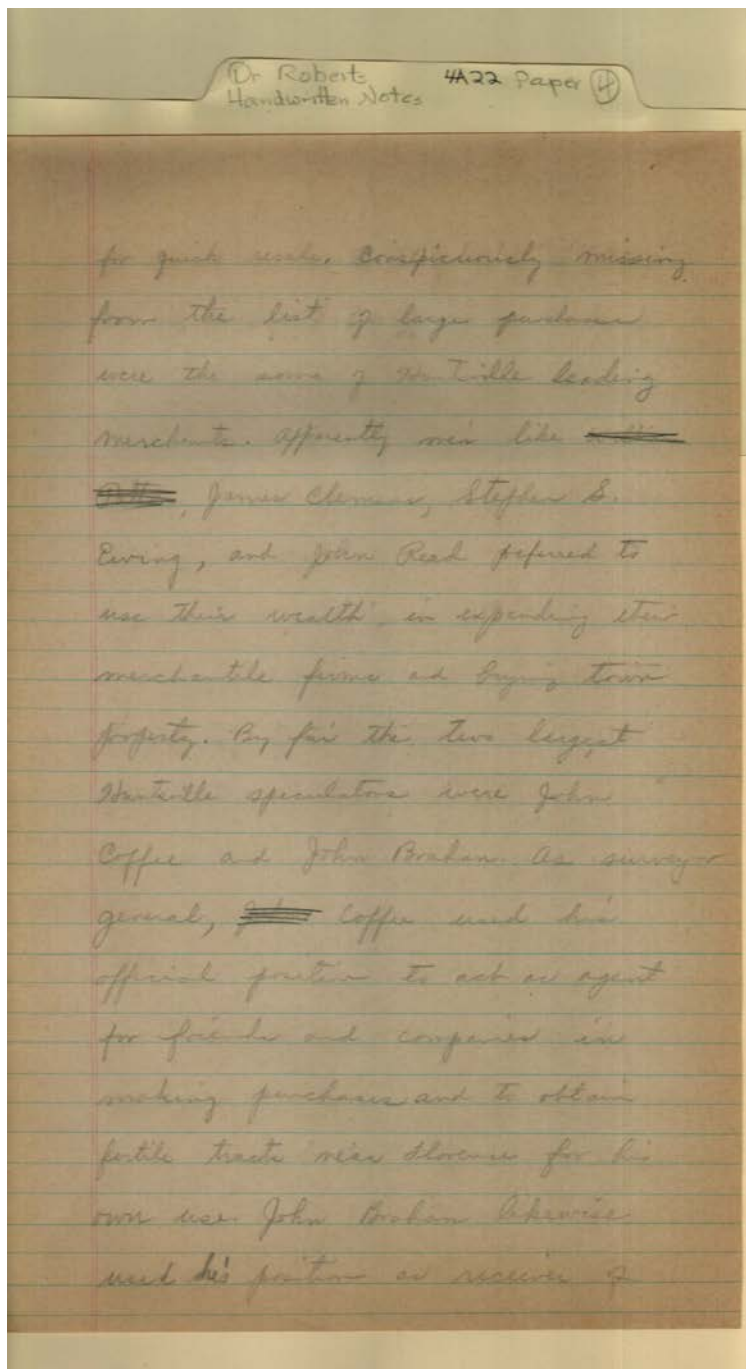 Dr Roberts 4A22 Paper 4
Handwritten Notes
for quick resale. Conspicuously missing
from the list of large purchasers
were the names of Huntsville leading
merchants. Apparently men like
, James Clemens, Stephen S.
Ewing, and John Read preferred to
use their wealth in expanding their
merchantile firms and buying town
property. By far the two largest
Huntsville speculators were John
Coffee and John Brahan. As surveyor
general, Coffee used his
official position to act as agent
for friends and companies in
making purchases and to obtain
fertile tracts near Florence for his
own use. John Brahan likewise
used his position as receiver of